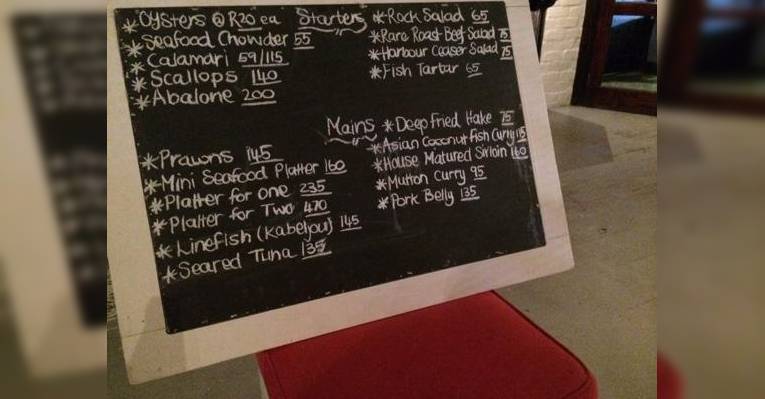 Starters
*Oysters @ R20 ea
*Seafood Chowder 55
*Calamari 59/115
*Scallops 140
*Abalone 200
*Rock Salad 65
*Rare Roast Beef Salad 75
*Harbour Ceaser Salad 75
*Fish Tartar 65
Mains
*Prawns 145
*Mini Seafood Platter 160
*Platter for one 235
*Platter for Two 470
*Linefish (Kabeljou) 145
*Seared Tuna 135
*Deep Fried Hake 75
*Asian Coconut Fish Curry 115
*House Matured Sirloin 160
*Mutton Curry 95
*Pork Belly 135